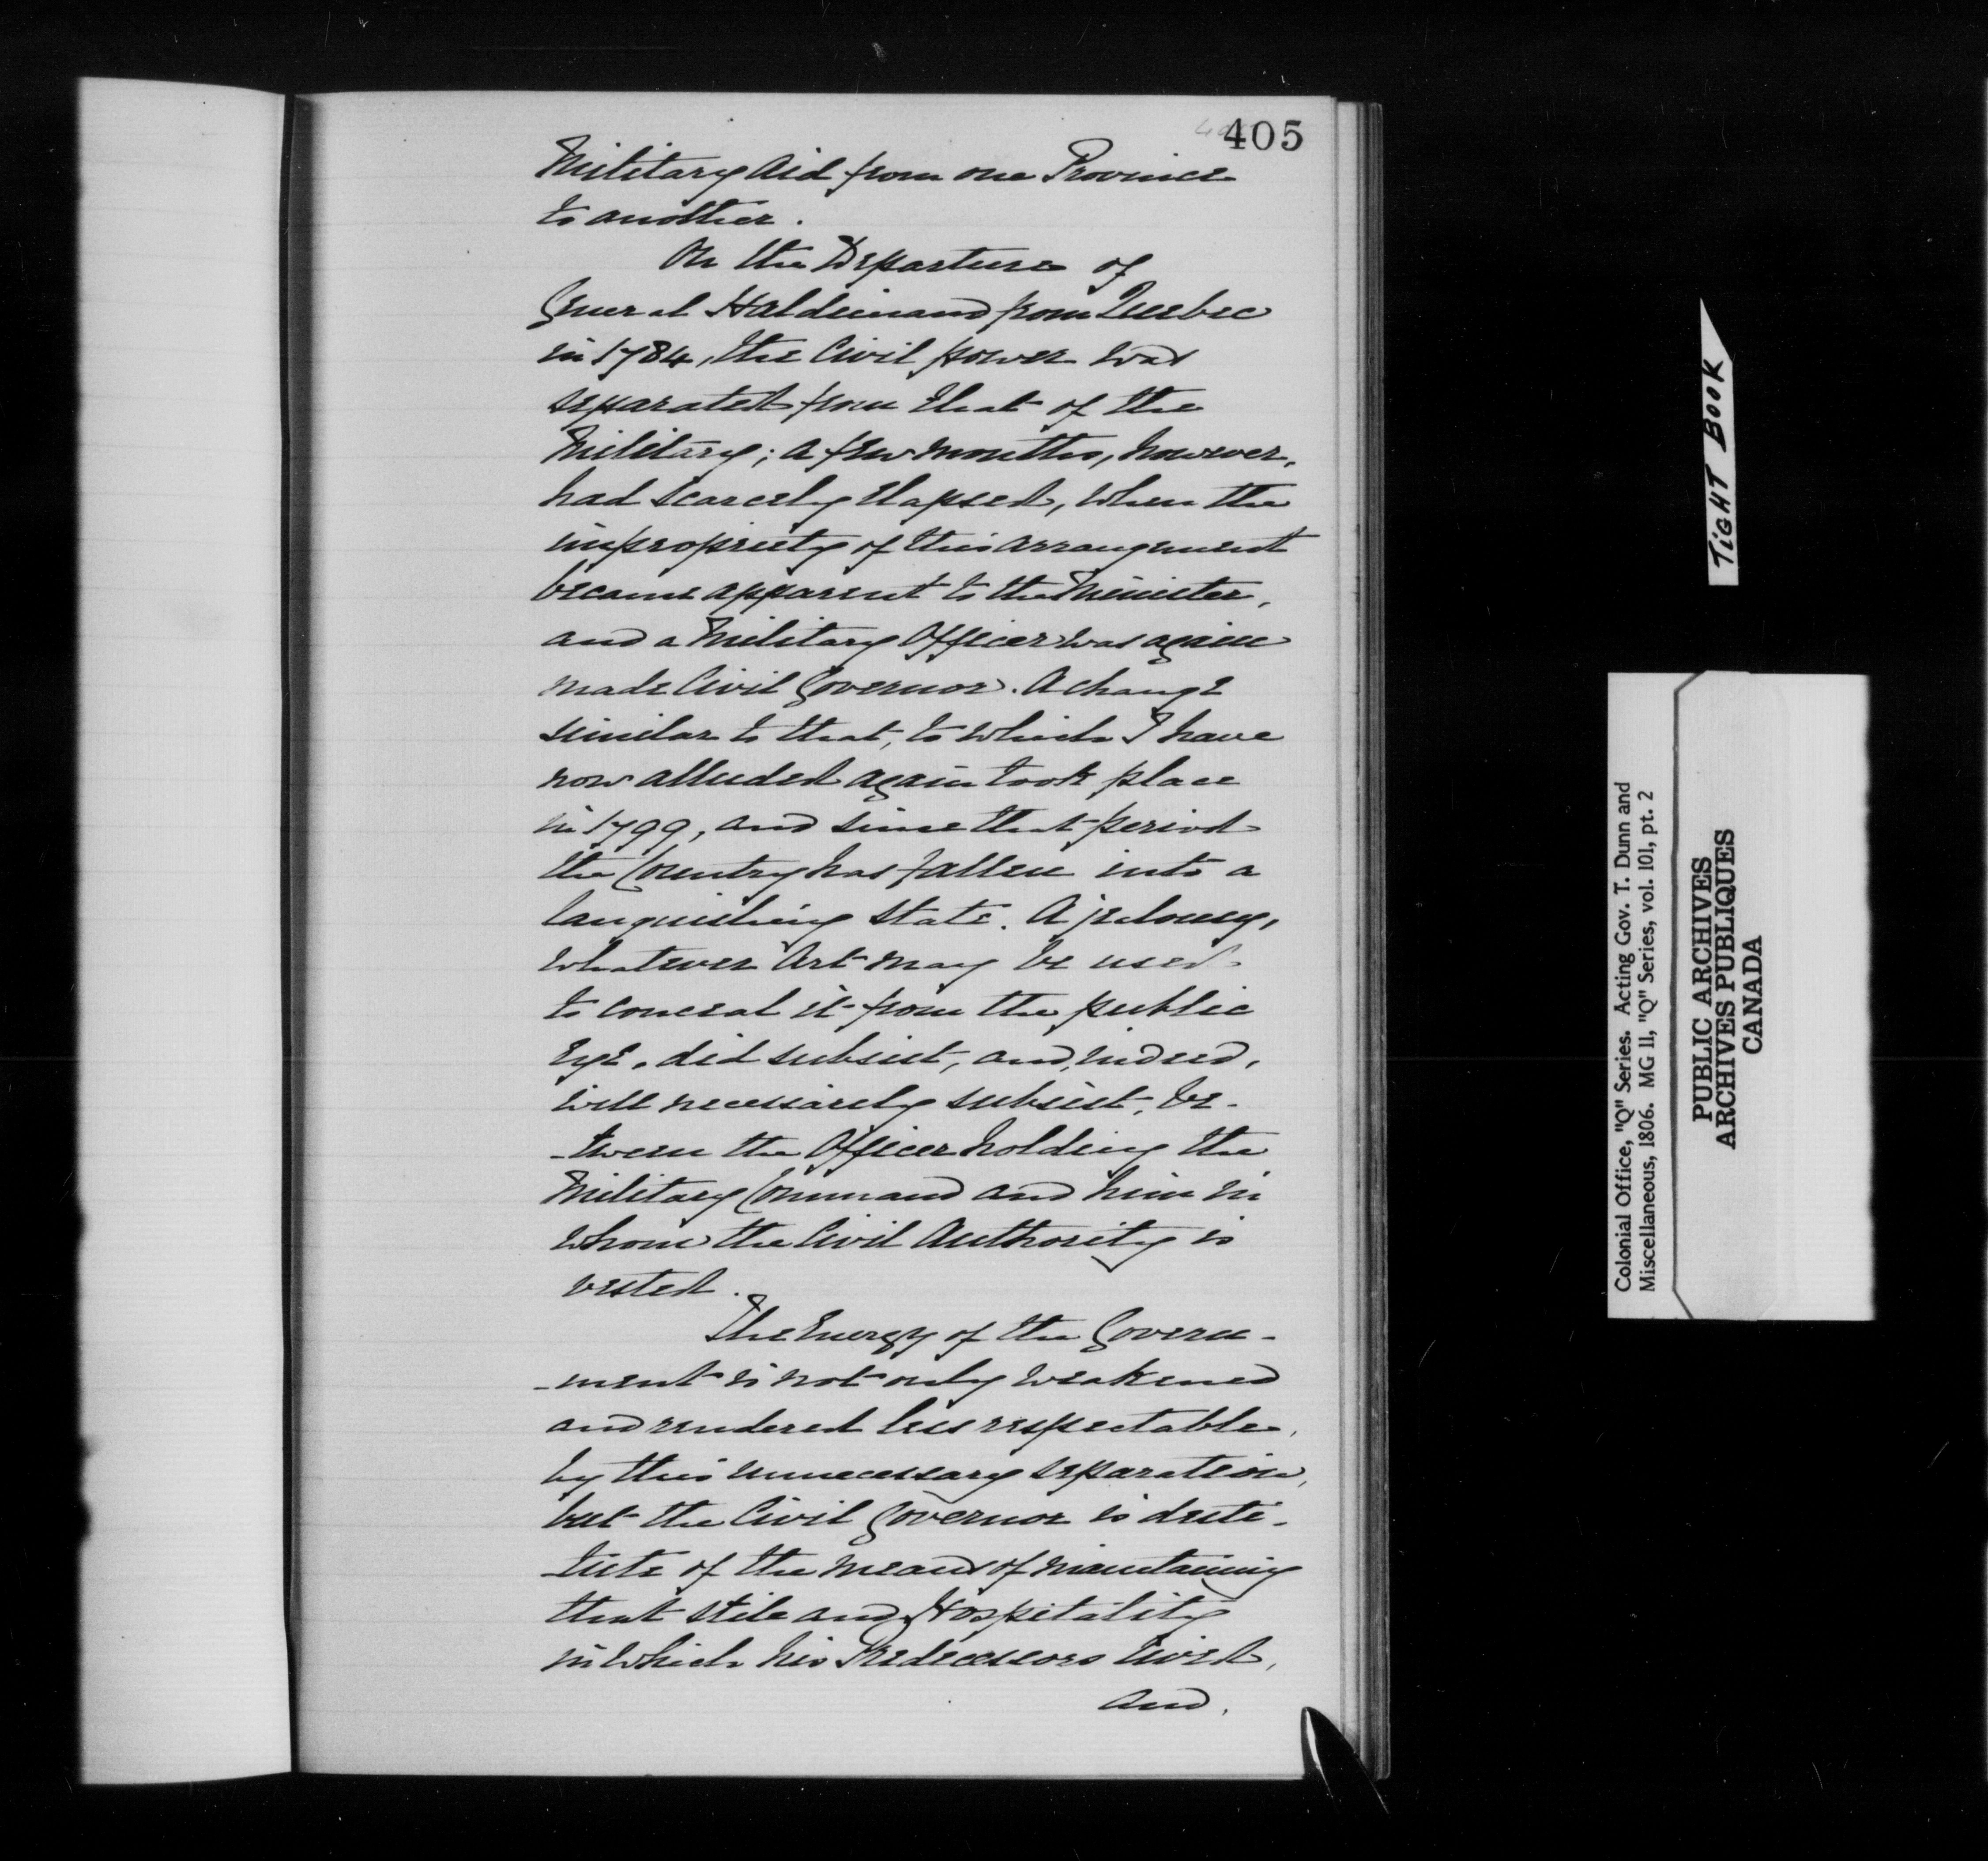 405
Military Aid from one Province
to another.
On the Departure of
General Haldimand from Quebec
in 1784, the Civil power was
separated from that of the
Military; a few months, however,
had scarcely elapsed, when the
impropriety of this arrangement
became apparent to the Minister,
and a Military Officer was again
made Civil Governor. A change
similar to that, to which I have
now alluded again took place
in 1799, and since that period
the Country has fallen into a
languishing state. A jealousy,
whatever Art may be used
to conceal it from the public
Eye, did subsist, and, indeed,
will necessarily subsist, be-
-tween the Officer holding the
Military Command and him in
whom the Civil Authority is
vested.
The Energy of the Govern-
-ment is not only weakened
and rendered less respectable,
by this unnecessary separation,
but the Civil Governor is desti-
-tute of the means of maintaining
that stile and Hospitality
in which his Predecessors lived,
and,
TIGHT BOOK
Colonial Office, "Q" Series. Acting Gov. T. Dunn and
Miscellaneous, 1806. MG 11, "Q" Series, vol. 101, pt. 2
PUBLIC ARCHIVES
ARCHIVES PUBLIQUES
CANADA